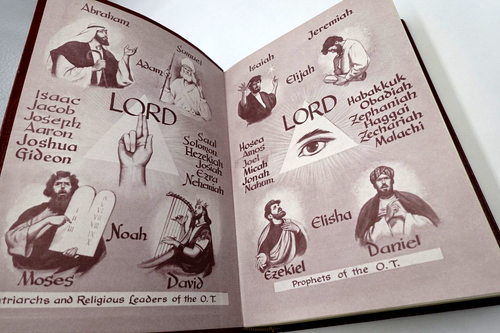 Abraham
Samuel
Adam
LORD
Isaac
Jacob
Joseph
Aaron
Joshua
Gideon
Saul
Solomon
Hezekiah
Josiah
Ezra
Nehemiah
Noah
Moses
David
triarchs and Religious Leaders of the O.T.
Isaiah
Jeremiah
Elijah
LORD
Hosea
Amos
Joel
Micah
Jonah
Nahum
Habakkuk
Obadiah
Zephaniah
Haggai
Zechariah
Malachi
Elisha
Ezekiel
Daniel
Prophets of the O.T.